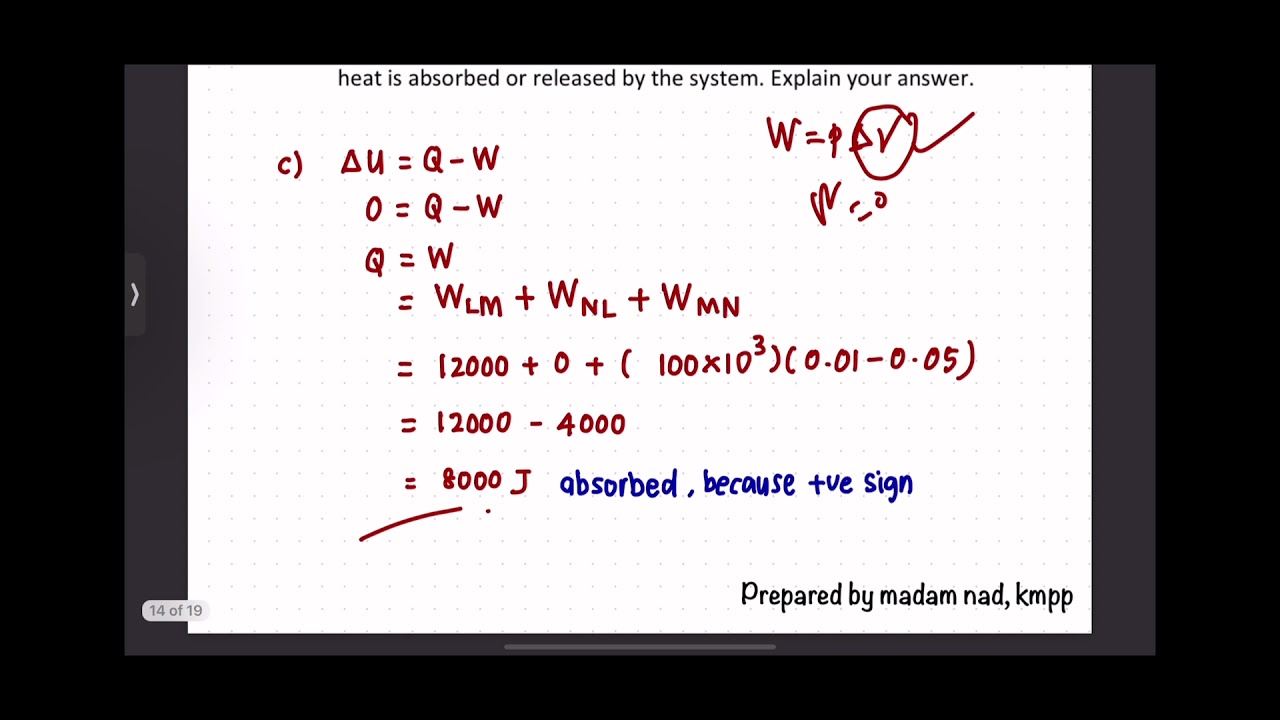 heat is absorbed or released by the system. Explain your answer.
W = P ΔV
W = 0
c) ΔU = Q - W
0 = Q - W
Q = W
= W_LM + W_NL + W_MN
= 12000 + 0 + ( 100×10³)(0.01 - 0.05)
= 12000 - 4000
= 8000 J absorbed, because +ve sign
Prepared by madam nad, kmpp
14 of 19